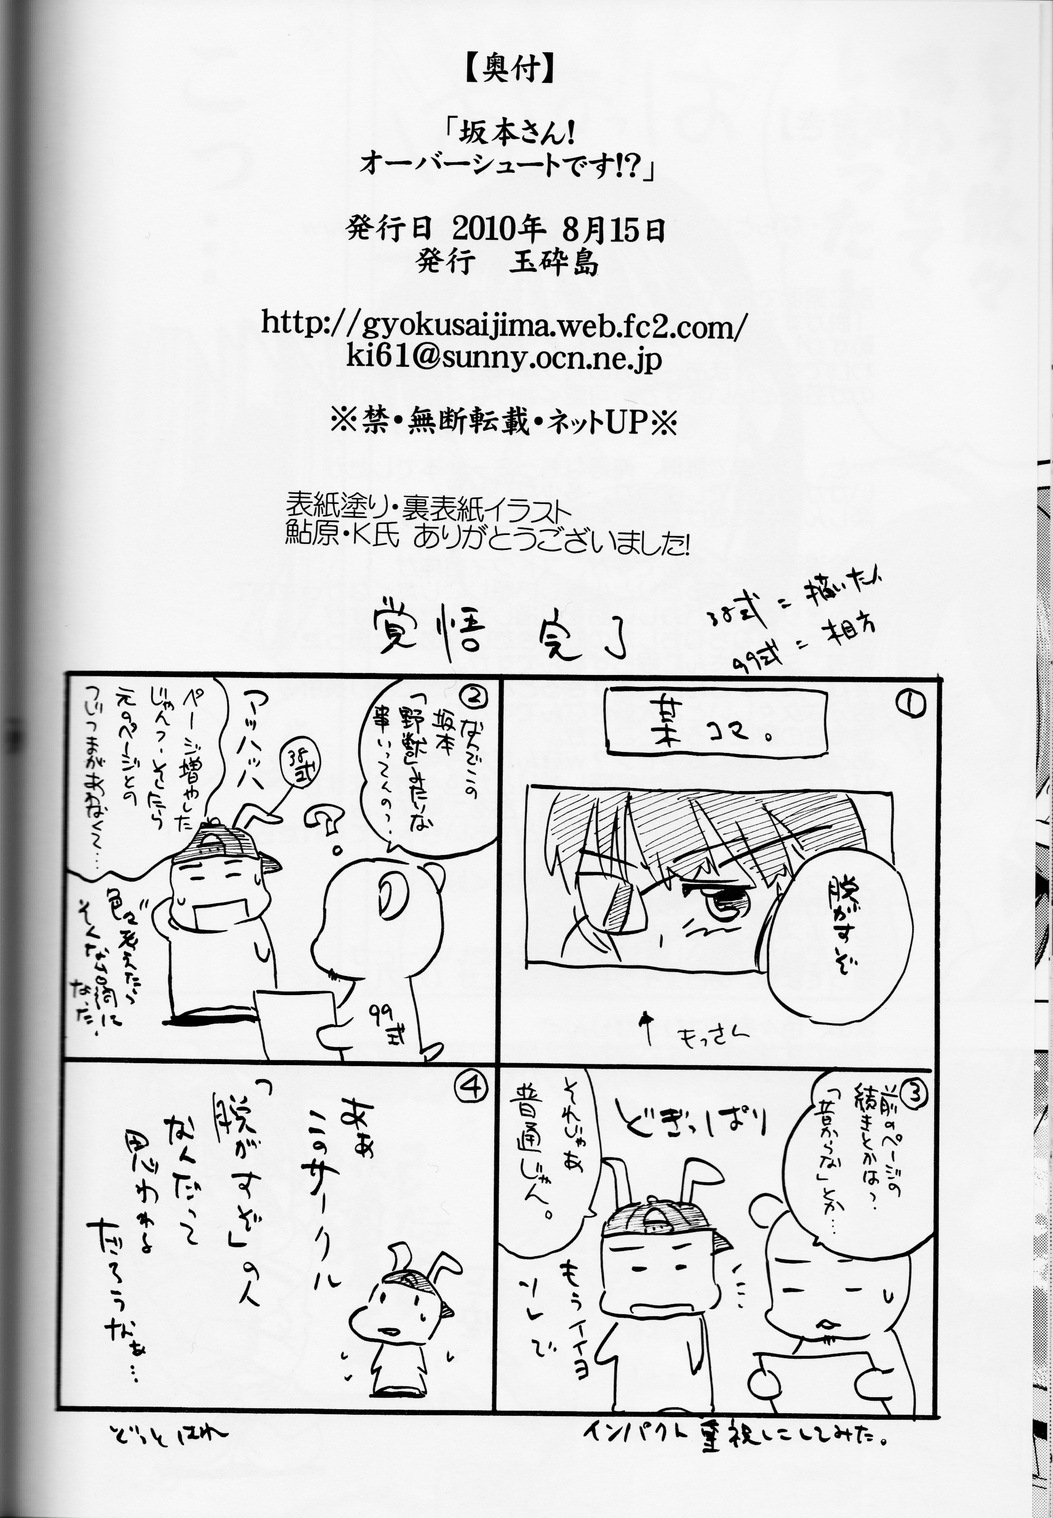 【奥付】
「坂本さん!
オーバーシュートです!?」
発行日 2010年 8月15日
発行 玉砕島
http://gyokusaijima.web.fc2.com/
ki61@sunny.ocn.ne.jp
※禁・無断転載・ネットUP※
表紙塗り・裏表紙イラスト
鮎原・K氏 ありがとうございました!
覚悟 完了
38式=描いた人
99式=相方
①
菜コマ。
脱がすぞ
↑もっさん
②
なんでこの
坂本
「野獣」みたいな
事いってんの?
?
38式
アッハッハ
ページ増やした
じゃん?そしたら
元のページとの
つじつまがあわなくて…
色々考えたら
そんな台詞に
なった。
99式
③
前のページの
続きとかは?
「昔からな」とか…
どぎっぱり
それじゃあ
普通じゃん。
もうイイヨ
ソレで
④
あぁ
このサークル
「脱がすぞ」の人
なんだって
思われる
だろうなぁ…
インパクト重視にしてみた。
どっとはれ